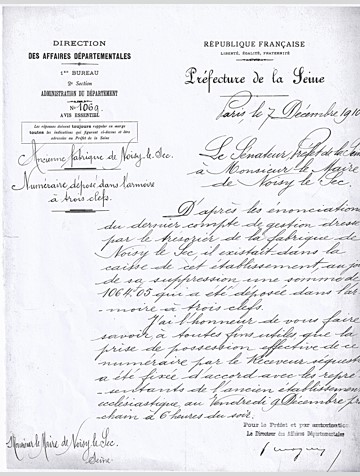 DIRECTION
DES AFFAIRES DÉPARTEMENTALES
1er BUREAU
2e Section
ADMINISTRATION DU DÉPARTEMENT
N° 1069
AVIS ESSENTIEL
Les réponses doivent toujours rappeler en marge
toutes les indications qui figurent ci-dessus et être
adressées au Préfet de la Seine
Ancienne fabrique de Noisy-le-Sec.
Numéraire déposé dans l'armoire
à trois clefs.
RÉPUBLIQUE FRANÇAISE
LIBERTÉ, ÉGALITÉ, FRATERNITÉ
Préfecture de la Seine
Paris, le 7 Décembre 191
Le Sénateur, Préfet de la Seine
à Monsieur le Maire
de Noisy le Sec
D'après les énonciations
du dernier compte de gestion dressé
par le trésorier de la fabrique de
Noisy le Sec, il existait dans la
caisse de cet établissement, au jour
de sa suppression, une somme de
1064f05 qui a été déposée dans l'ar
moire à trois clefs.
J'ai l'honneur de vous faire
savoir, à toutes fins utiles que la
prise de possession effective de ce
numéraire par le Receveur séquestre
a été fixée d'accord avec les repré
sentants de l'ancien établissement
ecclésiastique, au Vendredi 9 Décembre pro
chain à 6 heures du soir.
Pour le Préfet et par autorisation
Le Directeur des Affaires Départementales
Monsieur le Maire de Noisy le Sec.
Seine